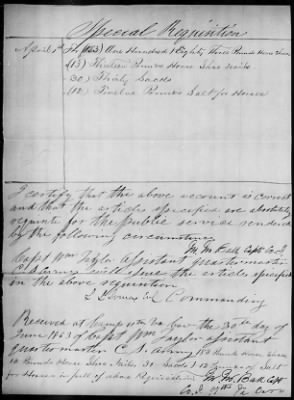 Special Requisition
April 1st (183) One Hundred & Eighty Three Pounds Horse Shoes
(13) Thirteen Pounds Horse Shoe Nails
(30) Thirty Sacks
(12) Twelve Pounds Salt for Horses
I certify that the above account is correct
and that the articles specified are absolutely
requisite for the public service rendered
by the following circumstances
Capt Co. I
Capt Wm Taylor assistant quartermaster
C S army will issue the articles specified
in the above requisition
Commanding
Received at Camp Va Gav the 30th day of
June 1863 of Capt Wm Taylor assistant
quartermaster C S army 183 Pounds Horse Shoes
13 Pounds Horse Shoe Nails 30 Sacks 12 Pounds of Salt
for Horses in full of above Requisition
Ball Capt
Co. I 11th Va Cav